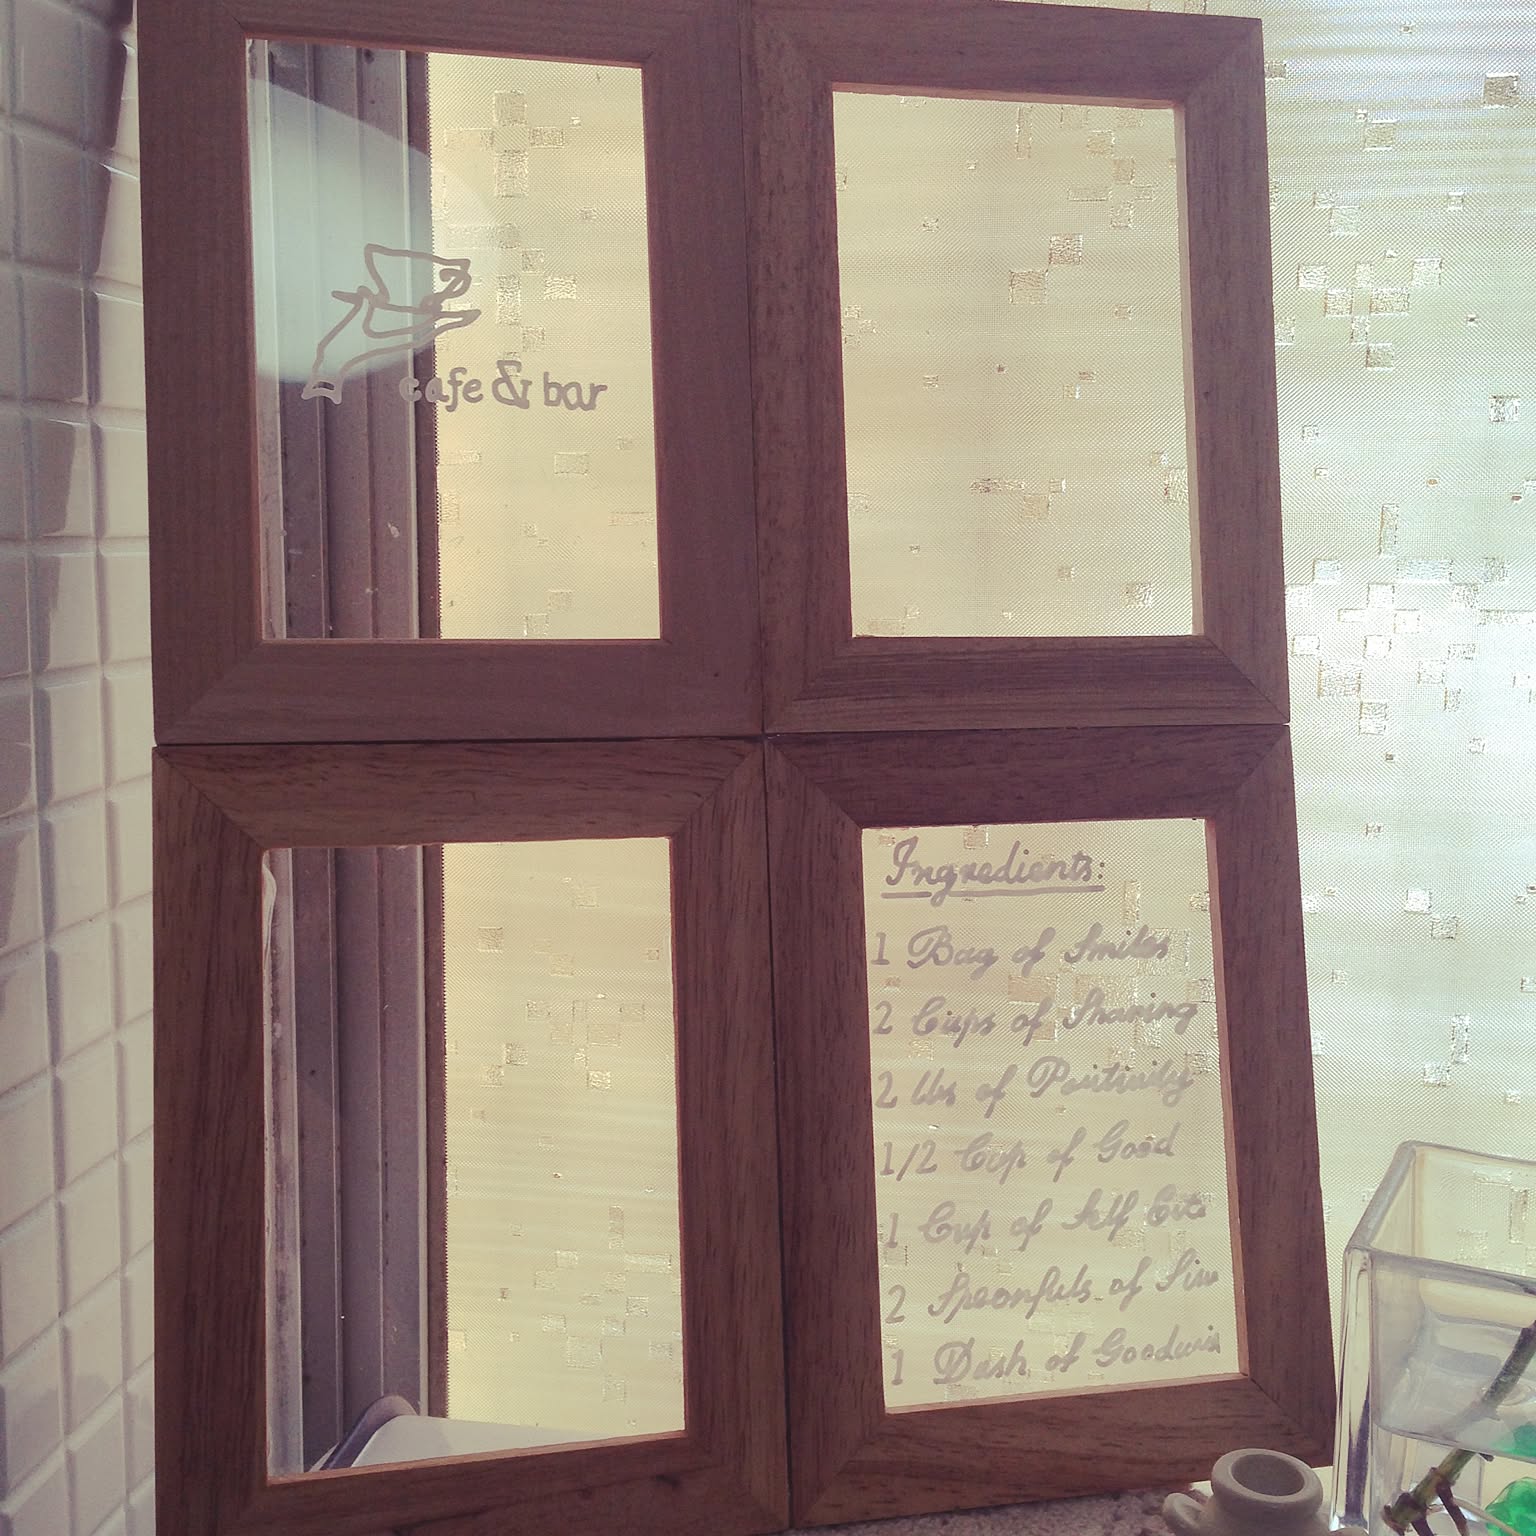 cafe & bar
Ingredients:
1 Bag of Smiles
2 Cups of Sharing
2 lbs of Positivity
1/2 Cup of Good
1 Cup of Self
2 Spoonfuls of
1 Dash of